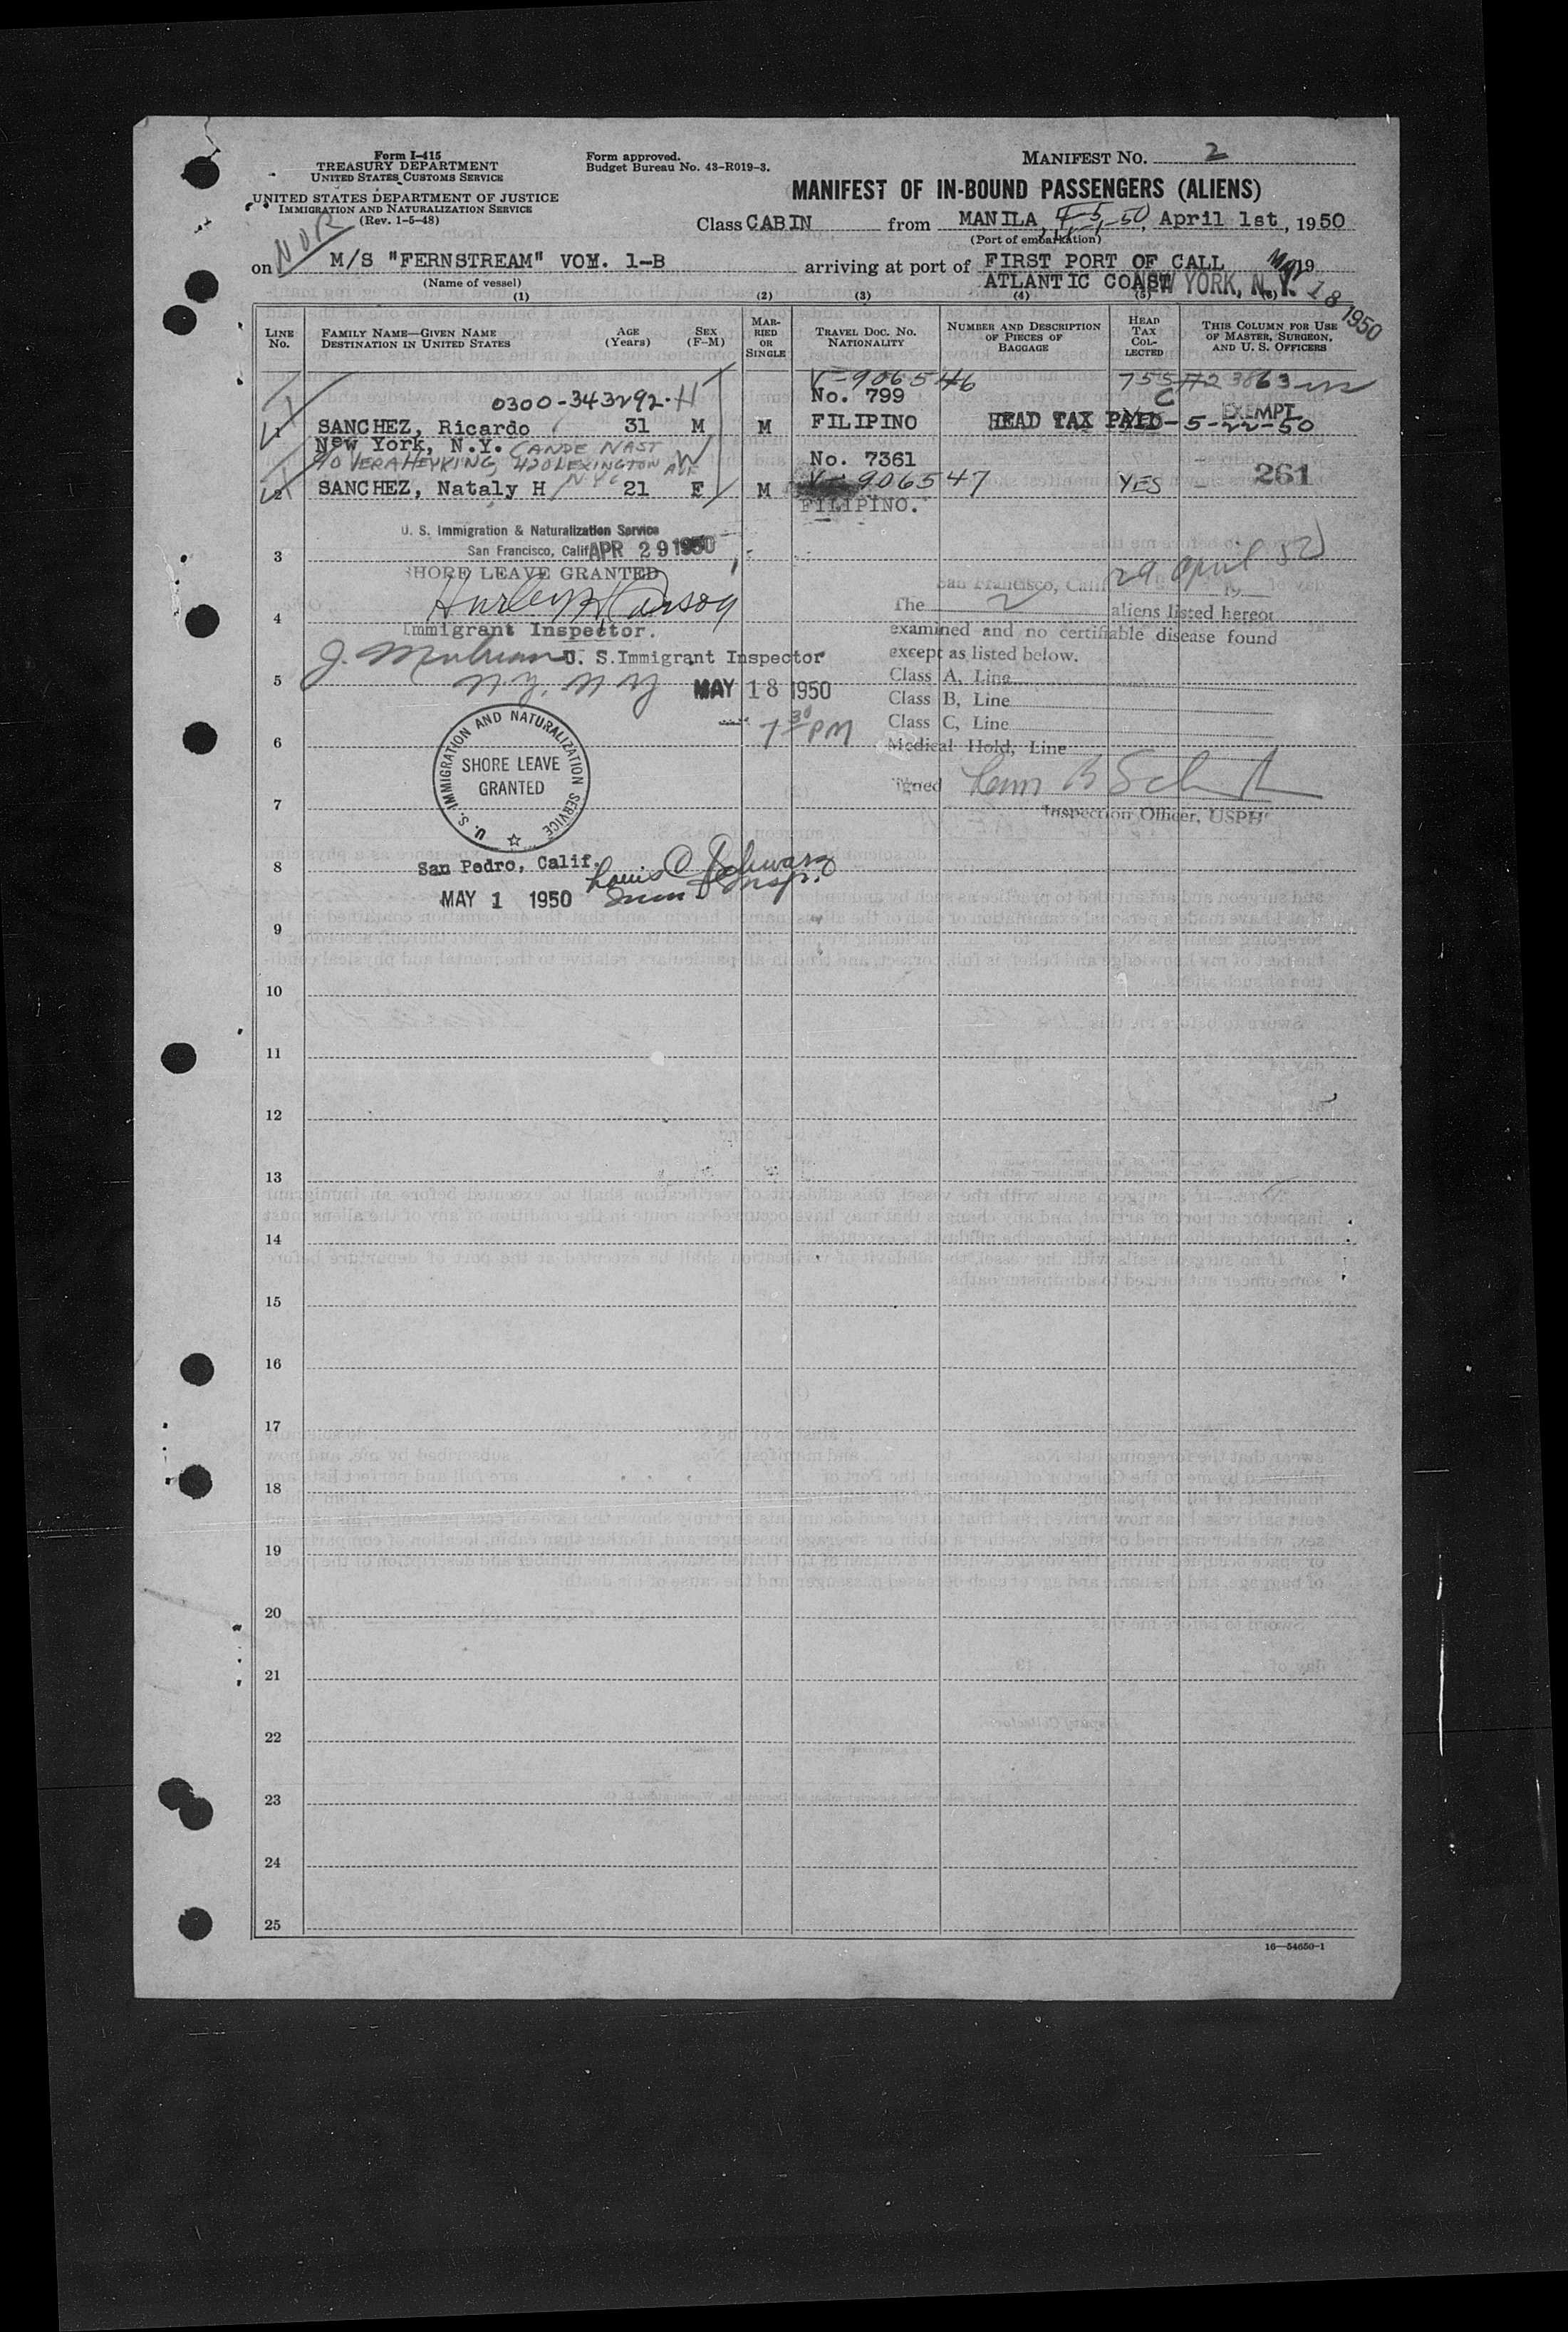 Form I-415
TREASURY DEPARTMENT
UNITED STATES CUSTOMS SERVICE
UNITED STATES DEPARTMENT OF JUSTICE
IMMIGRATION AND NATURALIZATION SERVICE
(Rev. 1-5-48)
Form approved.
Budget Bureau No. 43-R019-3.
MANIFEST NO. 2
MANIFEST OF IN-BOUND PASSENGERS (ALIENS)
Class CABIN from MANILA, April 1st, 1950
(Port of embarkation)
NOR
on M/S "FERNSTREAM" VOY. 1-B arriving at port of FIRST PORT OF CALL May 19
(Name of vessel)
ATLANTIC COAST NEW YORK, N.Y. 18 1950
(1) (2) (3) (4) (5) (6)
LINE No.
FAMILY NAME—GIVEN NAME
DESTINATION IN UNITED STATES
AGE (Years)
SEX (F–M)
MARRIED OR SINGLE
TRAVEL DOC. NO.
NATIONALITY
NUMBER AND DESCRIPTION OF PIECES OF BAGGAGE
HEAD TAX COLLECTED
THIS COLUMN FOR USE OF MASTER, SURGEON, AND U. S. OFFICERS
V-906546
0300-343292-H No. 799
1 SANCHEZ, Ricardo 31 M M FILIPINO HEAD TAX PAID - 5-22-50 EXEMPT
New York, N.Y. CANDE NAST
VERA HEYKING, 420 LEXINGTON AVE NYC No. 7361
2 SANCHEZ, Nataly H 21 F M V-906547 YES - 261
FILIPINO.
U. S. Immigration & Naturalization Service
San Francisco, Calif. APR 29 1950
3
SHORE LEAVE GRANTED
4
Immigrant Inspector.
U. S. Immigrant Inspector
5 N.Y. N Y MAY 18 1950
6 7 30 PM
San Francisco, Calif 29 April 19
The 2 aliens listed hereon
examined and no certifiable disease found
except as listed below.
Class A, Line
Class B, Line
Class C, Line
Medical Hold, Line
Signed
Inspection Officer, USPH
U. S. IMMIGRATION AND NATURALIZATION SERVICE
SHORE LEAVE
GRANTED
7
8 San Pedro, Calif. Louis C Schwarz
MAY 1 1950 Imm. Insp.
9
10
11
12
13
14
15
16
17
18
19
20
21
22
23
24
25
16—54650-1